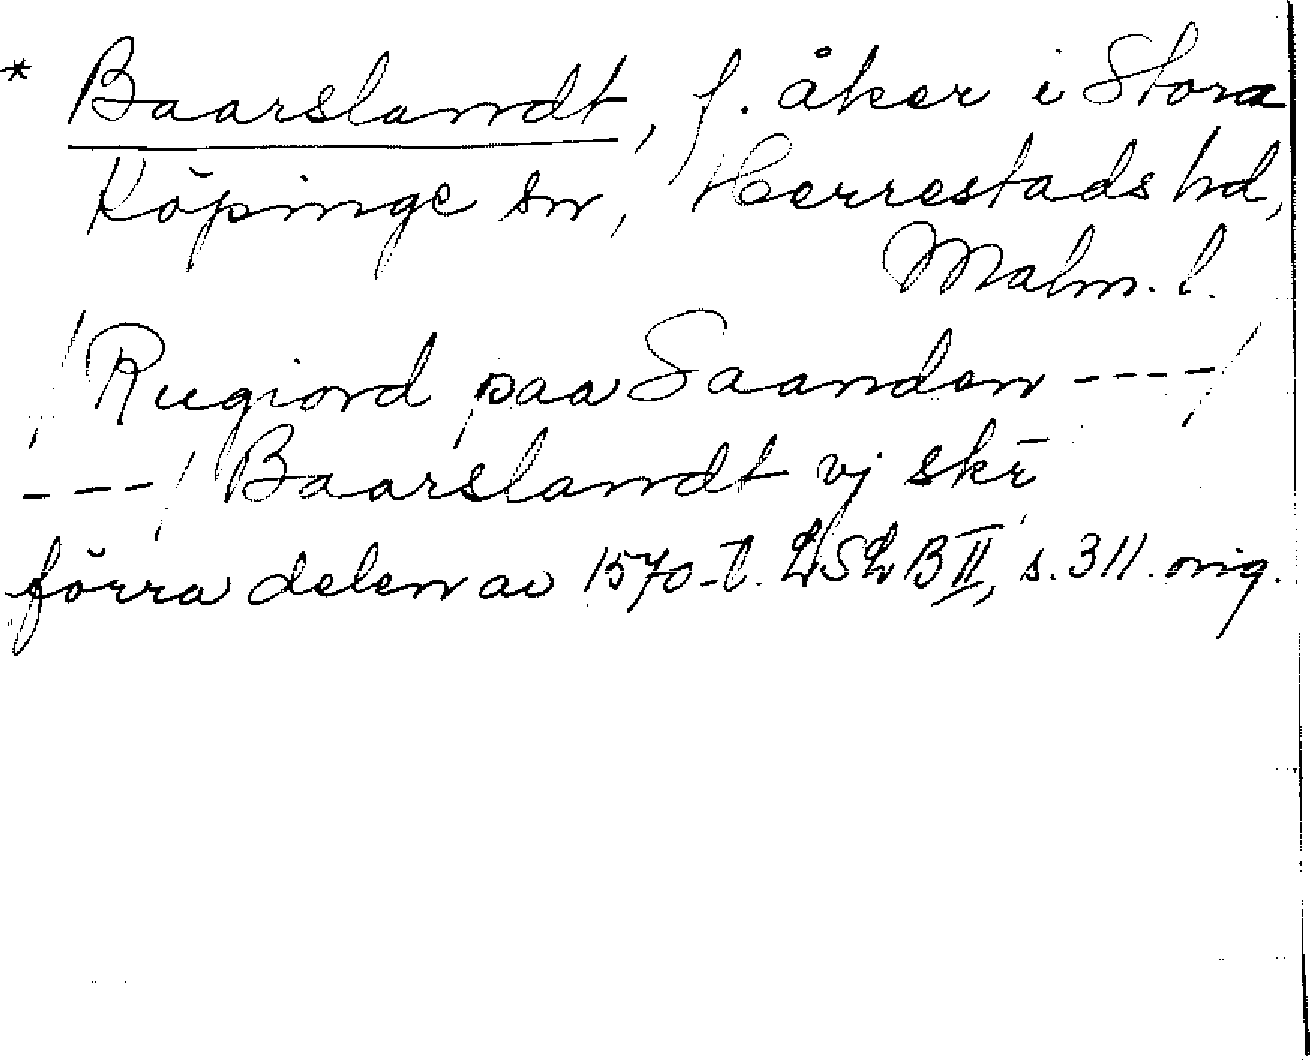 * Baarslandt, f. åker i Stora
Köpinge sn, Herrestads hd,
Malm. l.
/ Rugiord paa Saanden ---- /
--- / Baarslandt vj skr̄
förra delen av 1570-t. LSLB II, s. 311. orig.